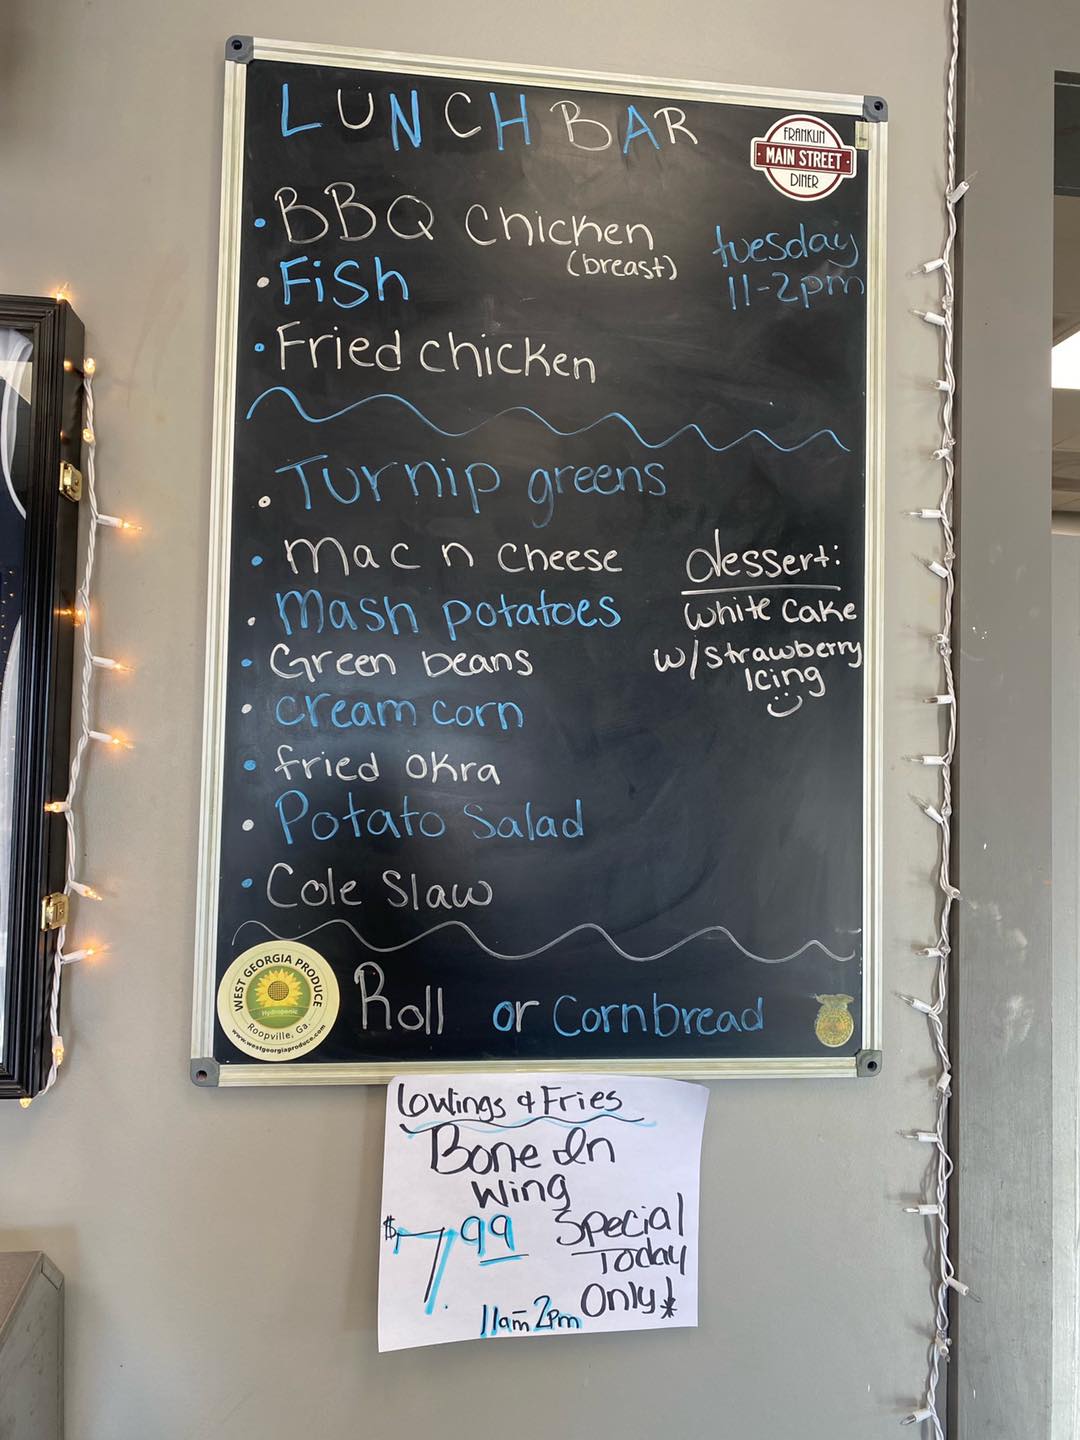 LUNCH BAR
FRANKLIN
MAIN STREET
DINER
• BBQ Chicken
(breast)
tuesday
11-2pm
• Fish
• Fried chicken
• Turnip greens
• Mac n cheese
• Mash potatoes
• Green beans
• cream corn
• fried okra
• Potato Salad
• Cole Slaw
dessert:
white cake
w/strawberry
Icing
WEST GEORGIA PRODUCE
Hydroponic
Roopville, Ga.
www.westgeorgiaproduce.com
Roll or Cornbread
6 Wings & Fries
Bone In
Wing
$7.99
Special
Today
Only!
11am-2pm